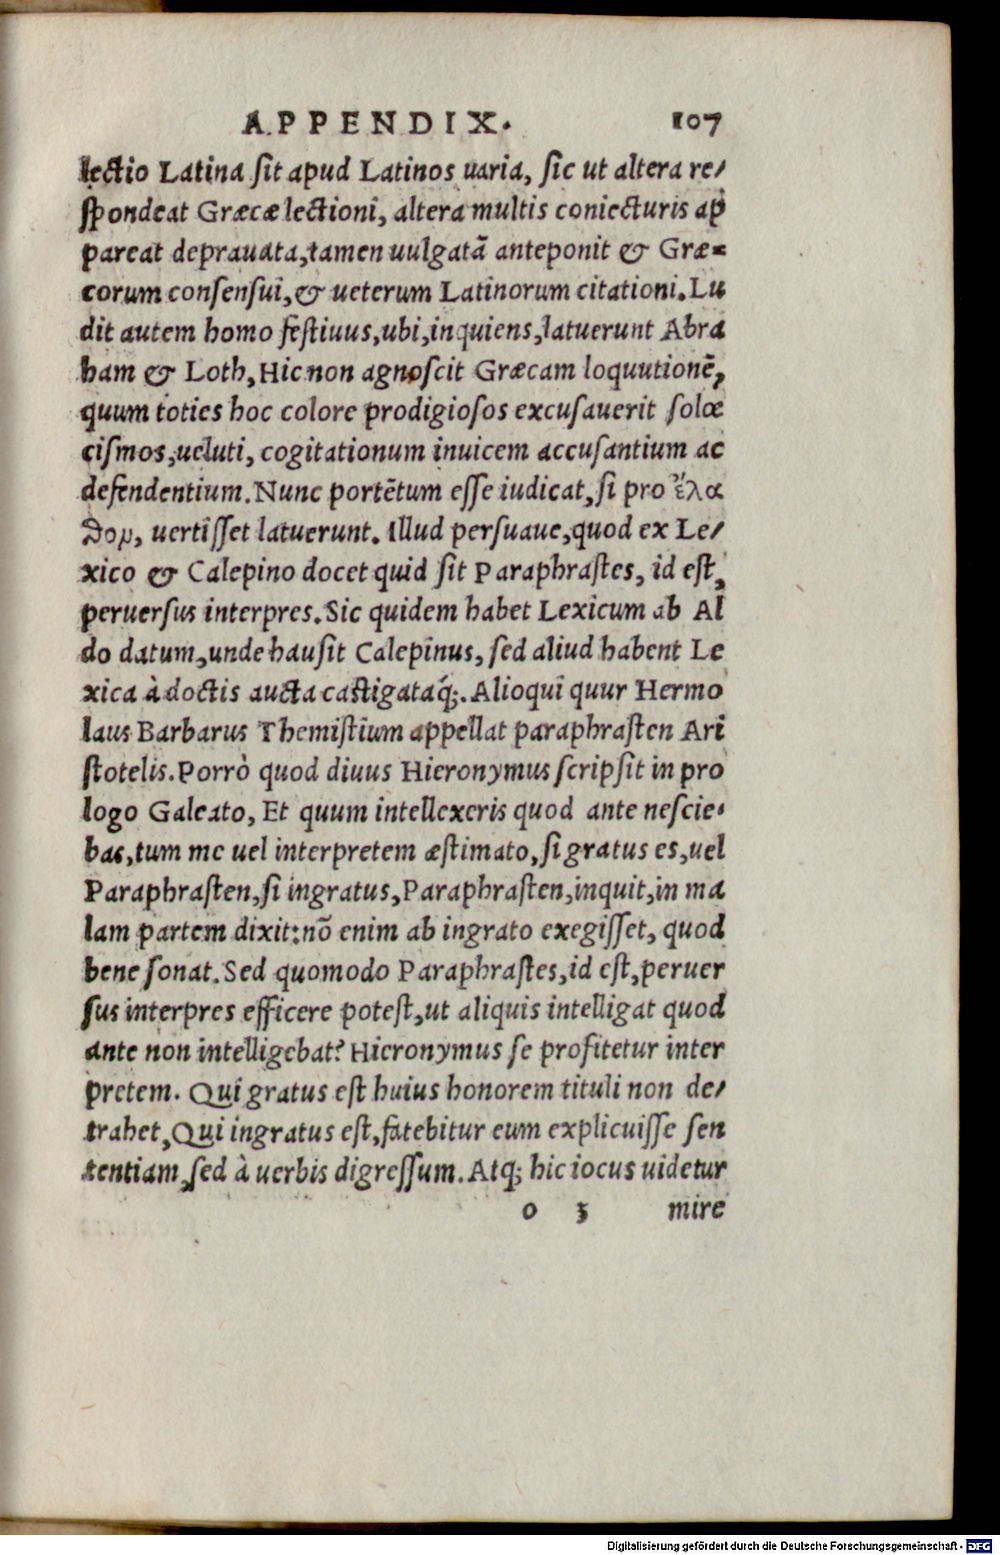 APPENDIX. 107
lectio Latina sit apud Latinos uaria, sic ut altera re/
spondeat Græcæ lectioni, altera multis coniecturis ap
pareat deprauata, tamen uulgatā anteponit & Græ=
corum consensui, & ueterum Latinorum citationi. Lu
dit autem homo festiuus, ubi, inquiens, latuerunt Abra
ham & Loth, Hic non agnoscit Græcam loquutionē,
quum toties hoc colore prodigiosos excusauerit solœ
cismos, ueluti, cogitationum inuicem accusantium ac
defendentium. Nunc portētum esse iudicat, si pro ἔλα
θον, uertisset latuerunt. Illud persuaue, quod ex Le/
xico & Calepino docet quid sit Paraphrastes, id est,
peruersus interpres. Sic quidem habet Lexicum ab Al
do datum, unde hausit Calepinus, sed aliud habent Le
xica à doctis aucta castigataq́;. Alioqui quur Hermo
laus Barbarus Themistium appellat paraphrasten Ari
stotelis. Porrò quod diuus Hieronymus scripsit in pro
logo Galeato, Et quum intellexeris quod ante nescie-
bas, tum me uel interpretem æstimato, si gratus es, uel
Paraphrasten, si ingratus, Paraphrasten, inquit, in ma
lam partem dixit: nō enim ab ingrato exegisset, quod
bene sonat. Sed quomodo Paraphrastes, id est, peruer
sus interpres efficere potest, ut aliquis intelligat quod
ante non intelligebat? Hieronymus se profitetur inter
pretem. Qui gratus est huius honorem tituli non de/
trahet, Qui ingratus est, fatebitur eum explicuisse sen
tentiam, sed à uerbis digressum. Atq; hic iocus uidetur
o 3 mire
Digitalisierung gefördert durch die Deutsche Forschungsgemeinschaft - DFG